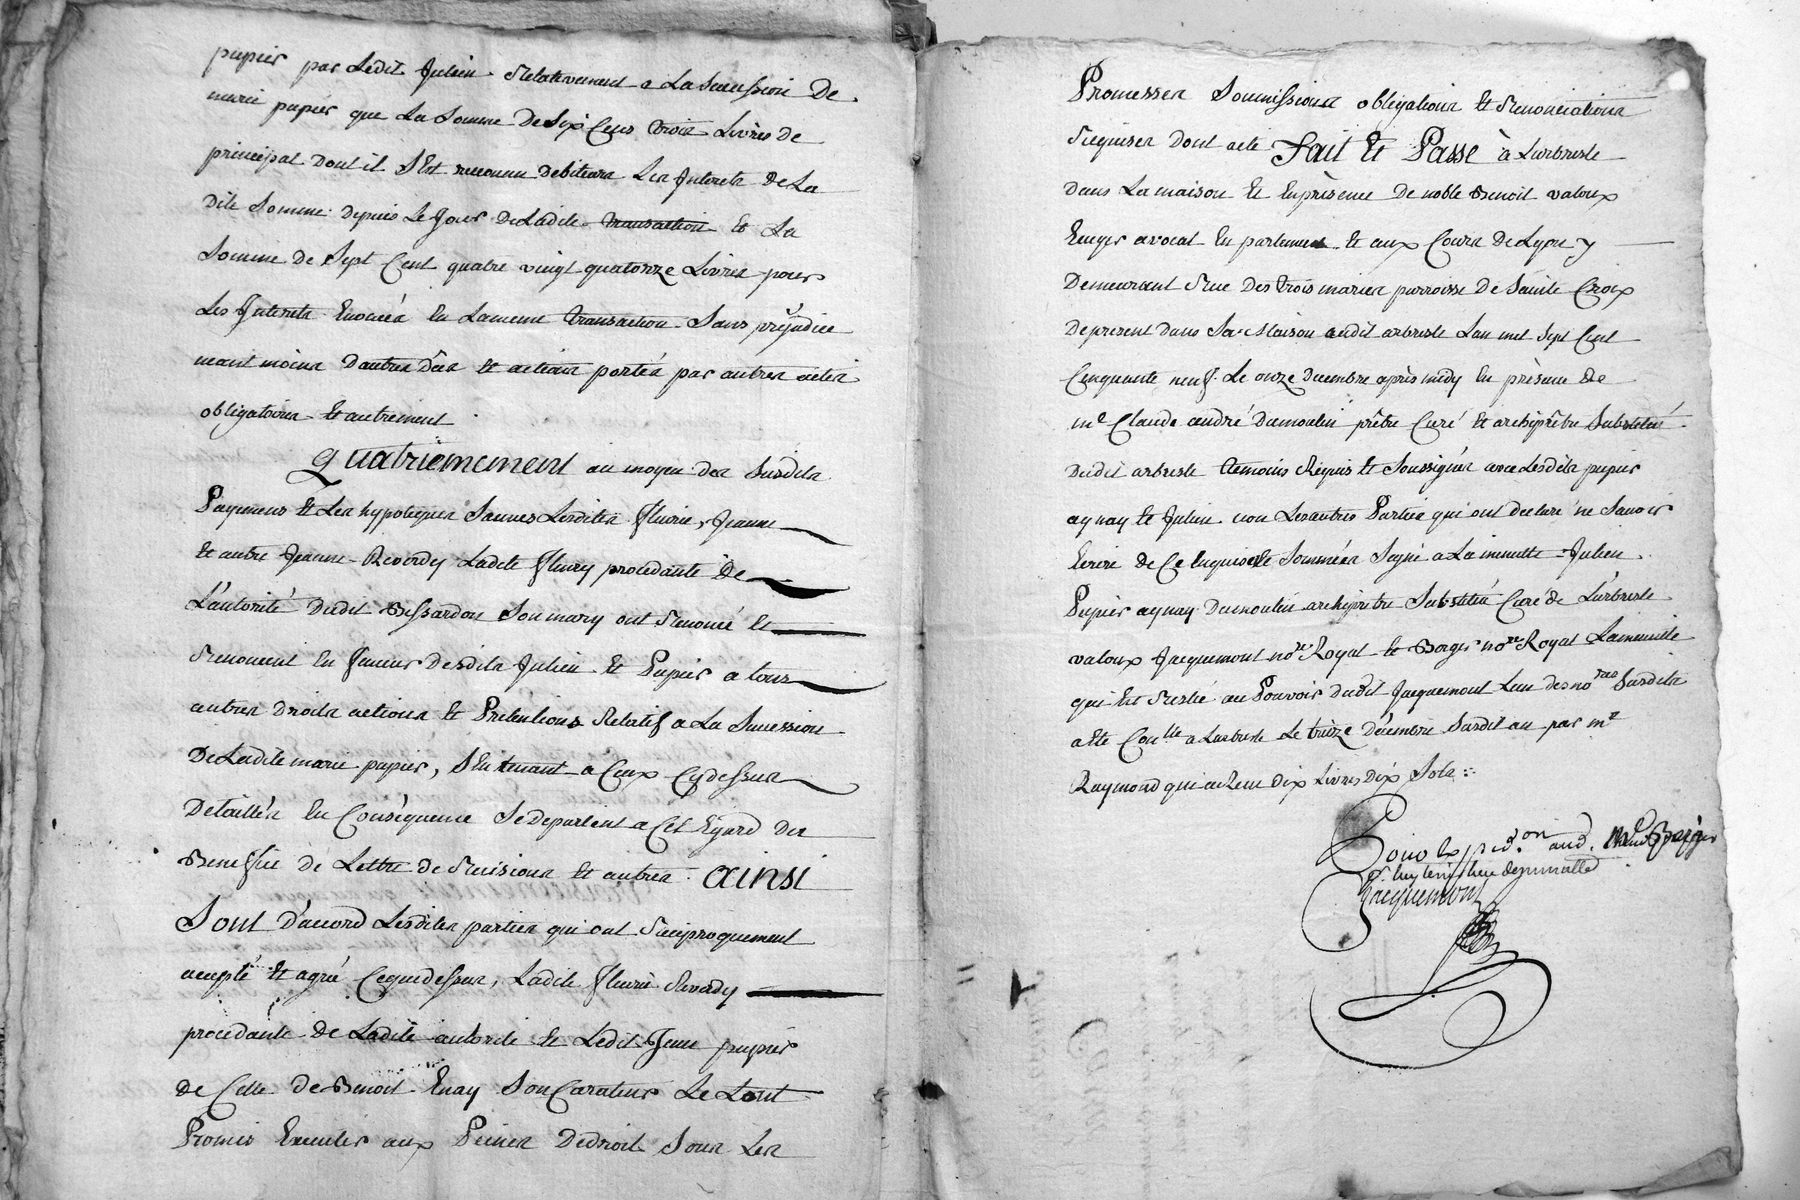 pupier par Ledit Julien Relativement a La Succession De
marie pupier que La Somme De Six Cens trois Livres de
principal dont il S'est reconnu debiteur Les Interets de La
dite Somme depuis Le Jour de Ladite transaction Et La
Somme de Sept Cent quatre vingt quatorze Livres pour
Les Interets Enoncés En Lameme transaction Sans préjudice
neant moins Dautres dûs Et actions portés par autres actes
obligatoires Et autrement
Quatriemement au moyen des Susdits
Payemens Et Les hypoteques Sauves Lesdites fleurie, Jeanne
Et autre Jeanne Recordy Ladite fleury procedante de
L'autorité dudit Bissardon Son mary ont Renoncé Et
Renoncent En faveur Desdits Julien Et Pupier a tous
autres droits actions Et Pretentions Relatifs a La Succession
De Ladite marie pupier, S'En tenant a Ceux Cydessus
Detaillés En Conséquence Se Departent a Cet Egard des
Benefice de Lettre de Recisions Et autres. ainsi
Sont D'accord Lesdites parties qui ont Reciproquement
accepté Et agréé Cequedessus, Ladite fleurie Recordy
procedante de Ladite autorité Et Ledit Jean pupier
de Celle de Benoit Enay Son Curateur Le tout
Promis Executer aux Peines Dedroit Sous Les
Promesses Soumissions obligations Et Renonciations
Requises dont acte Fait Et Passé à Larbresle
dans La maison Et En présence De noble Benoit valoux
Ecuyer avocat En parlement Et aux Cours de Lyon y
Demeurant Rue Des trois maries parroisse De Sainte Croix
De present dans Sa Maison audit arbresle Lan mil Sept Cent
Cinquante neuf. Le onze Decembre après midy En présence de
me Claude andré Dumoulin prêtre Curé Et archiprêtre Substitué
dudit arbresle temoins Requis Et Soussignés avec Lesdits pupier
aynay Et Julien non Les autres Parties qui ont declaré ne Savoir
Ecrire de Ce Enquis Et Sommées Signé a La minutte Julien
Pupier aynay Dumoulin archiprêtre Substitué Curé de L'arbresle
valoux Jacquemont nore Royal Et Borges nore Royal Lameinutte
qui Est Restée au Pouvoir dudit Jacquemont Lun des nores Susdits
a Eté Conlle a Larbresle Le treize Décembre Susdit an par mr
Raymond qui a Reçu dix Livres dix Sols
Pour Expedon aud.
Jacquemont